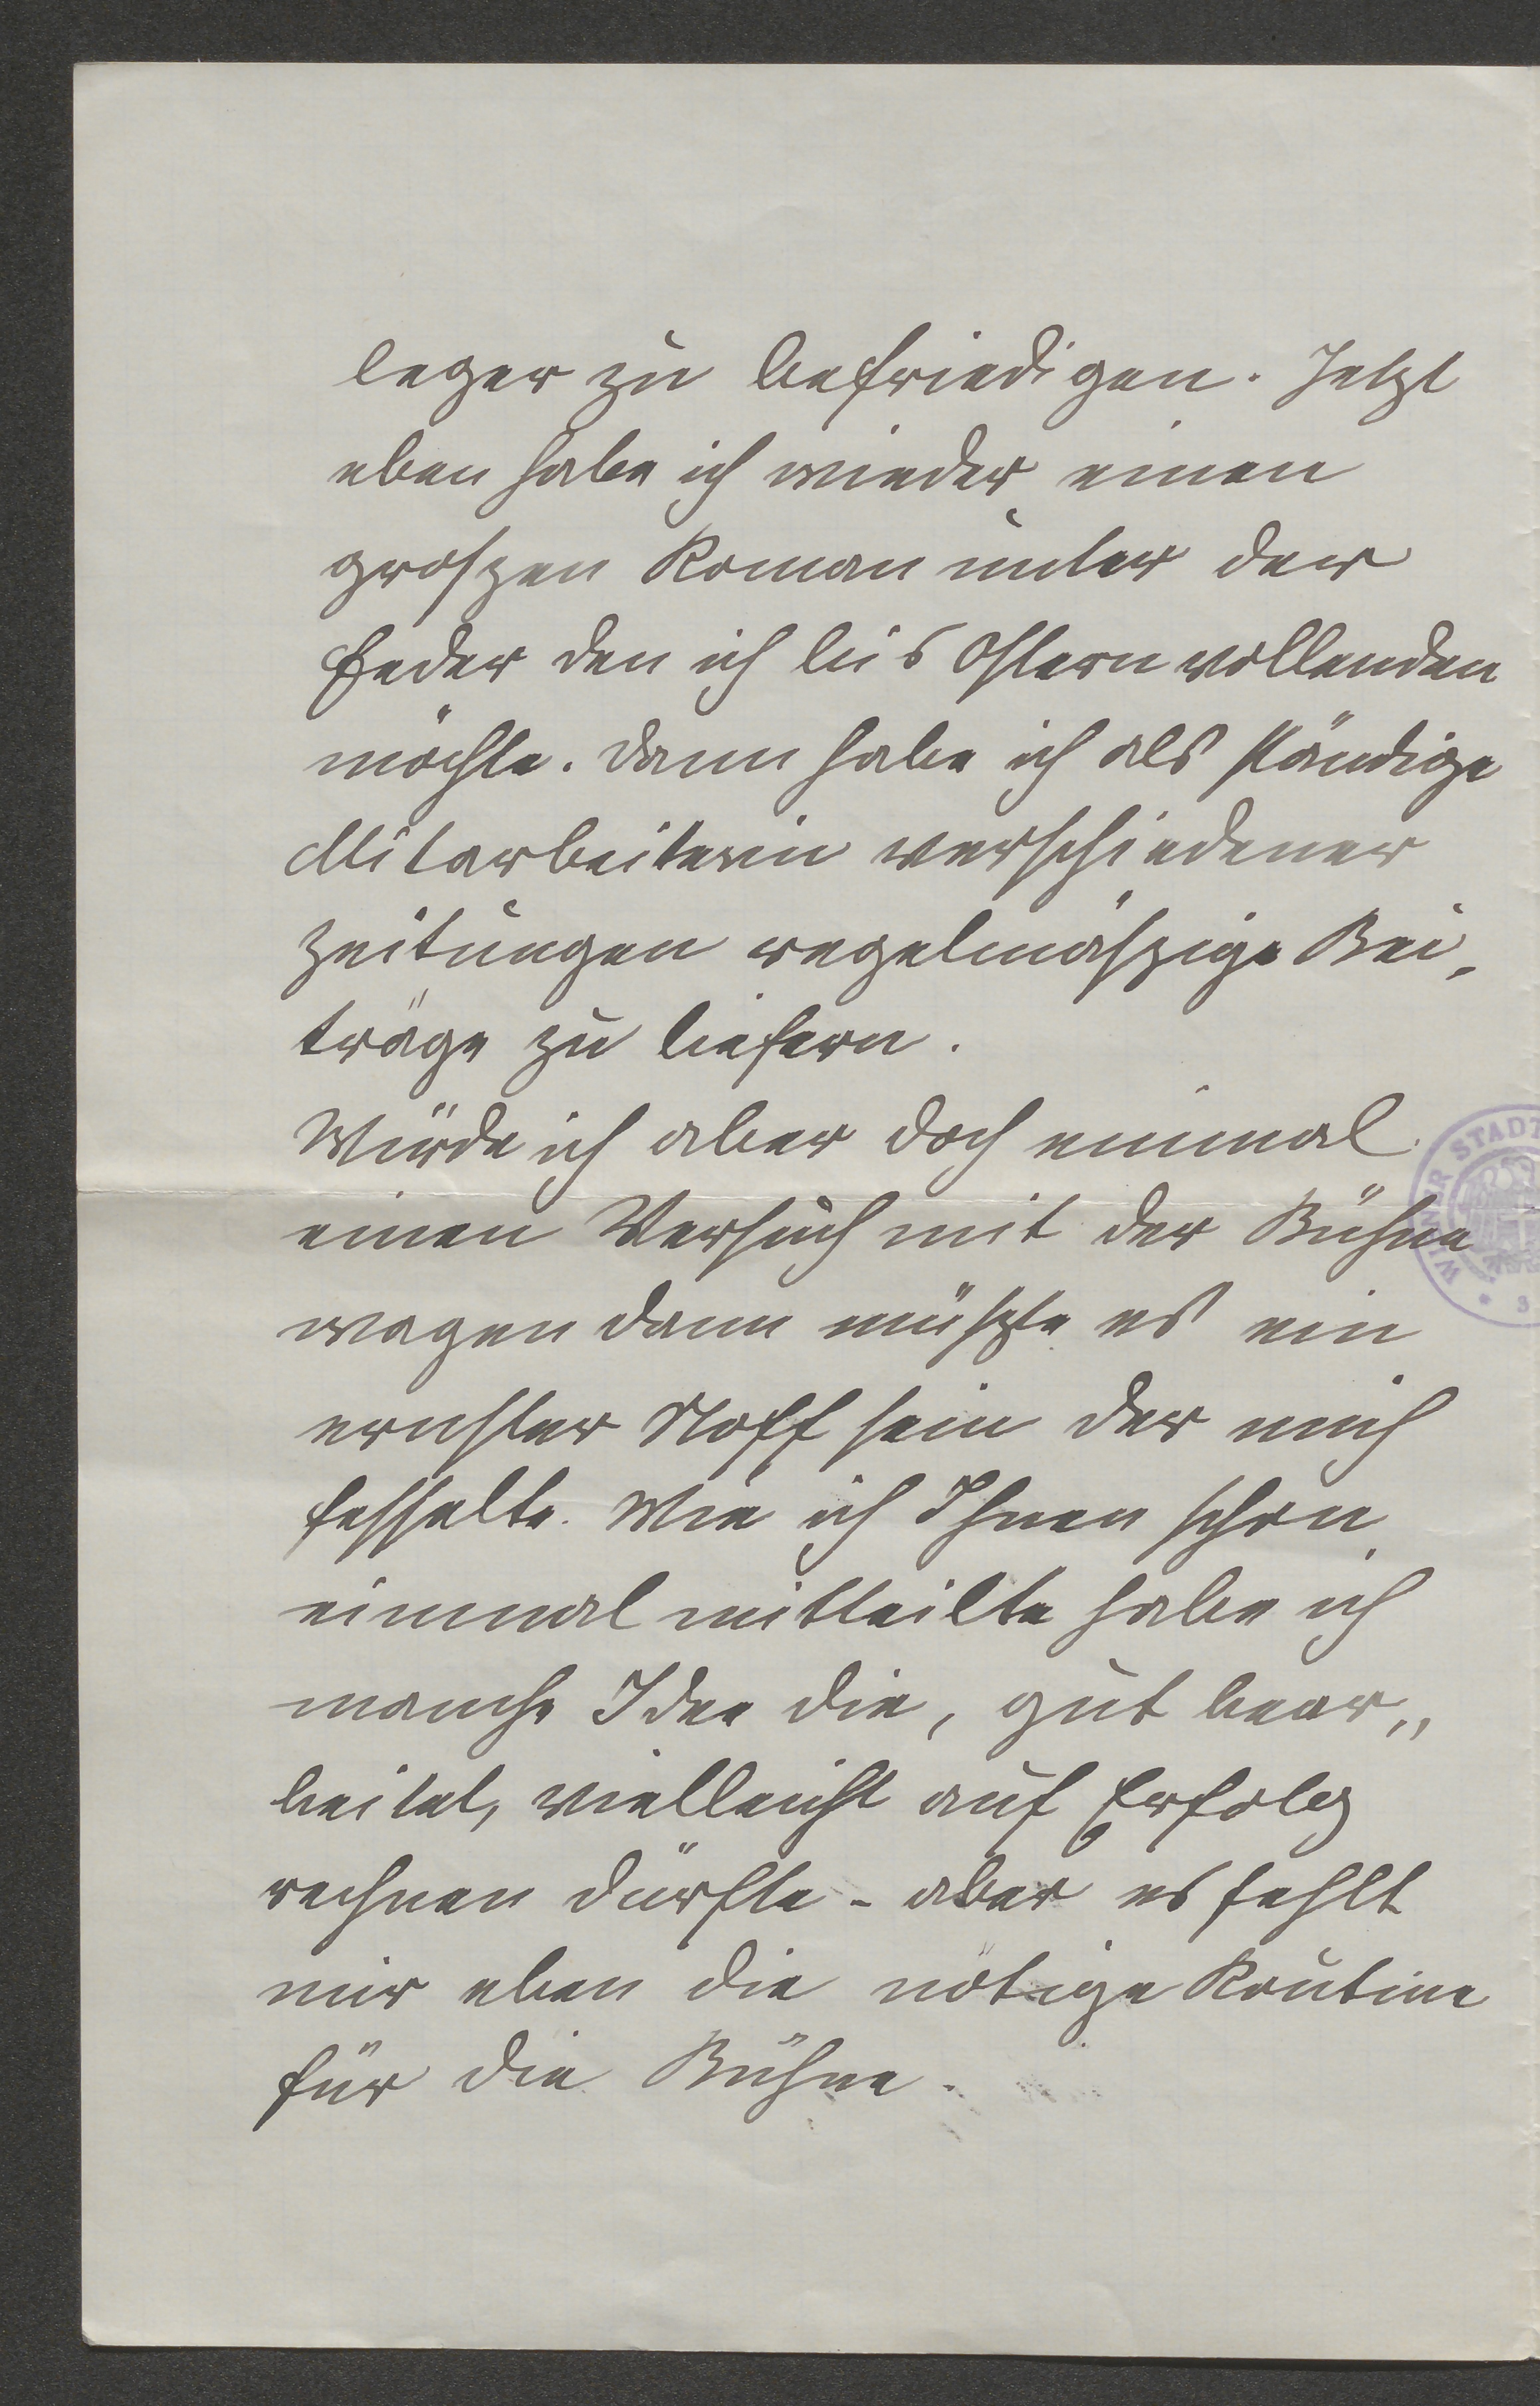 leger zu befriedigen. Jetzt
eben habe ich wieder einen
großen Roman unter der
Feder den ich bis Ostern vollenden
möchte. Dann habe ich als ständige
Mitarbeiterin verschiedener
Zeitungen regelmäßige Bei-
träge zu liefern.
Würde ich aber doch einmal
einen Versuch mit der Bühne
wagen dann müßte es ein
ernster Stoff sein der mich
fesselte. Wie ich Ihnen schon
einmal mitteilte habe ich
manche Idee die, gut bear„
beitet, vielleicht auf Erfolg
rechnen dürfte - aber es fehlt
mir eben die nötige Routine
für die Bühne.
STADT